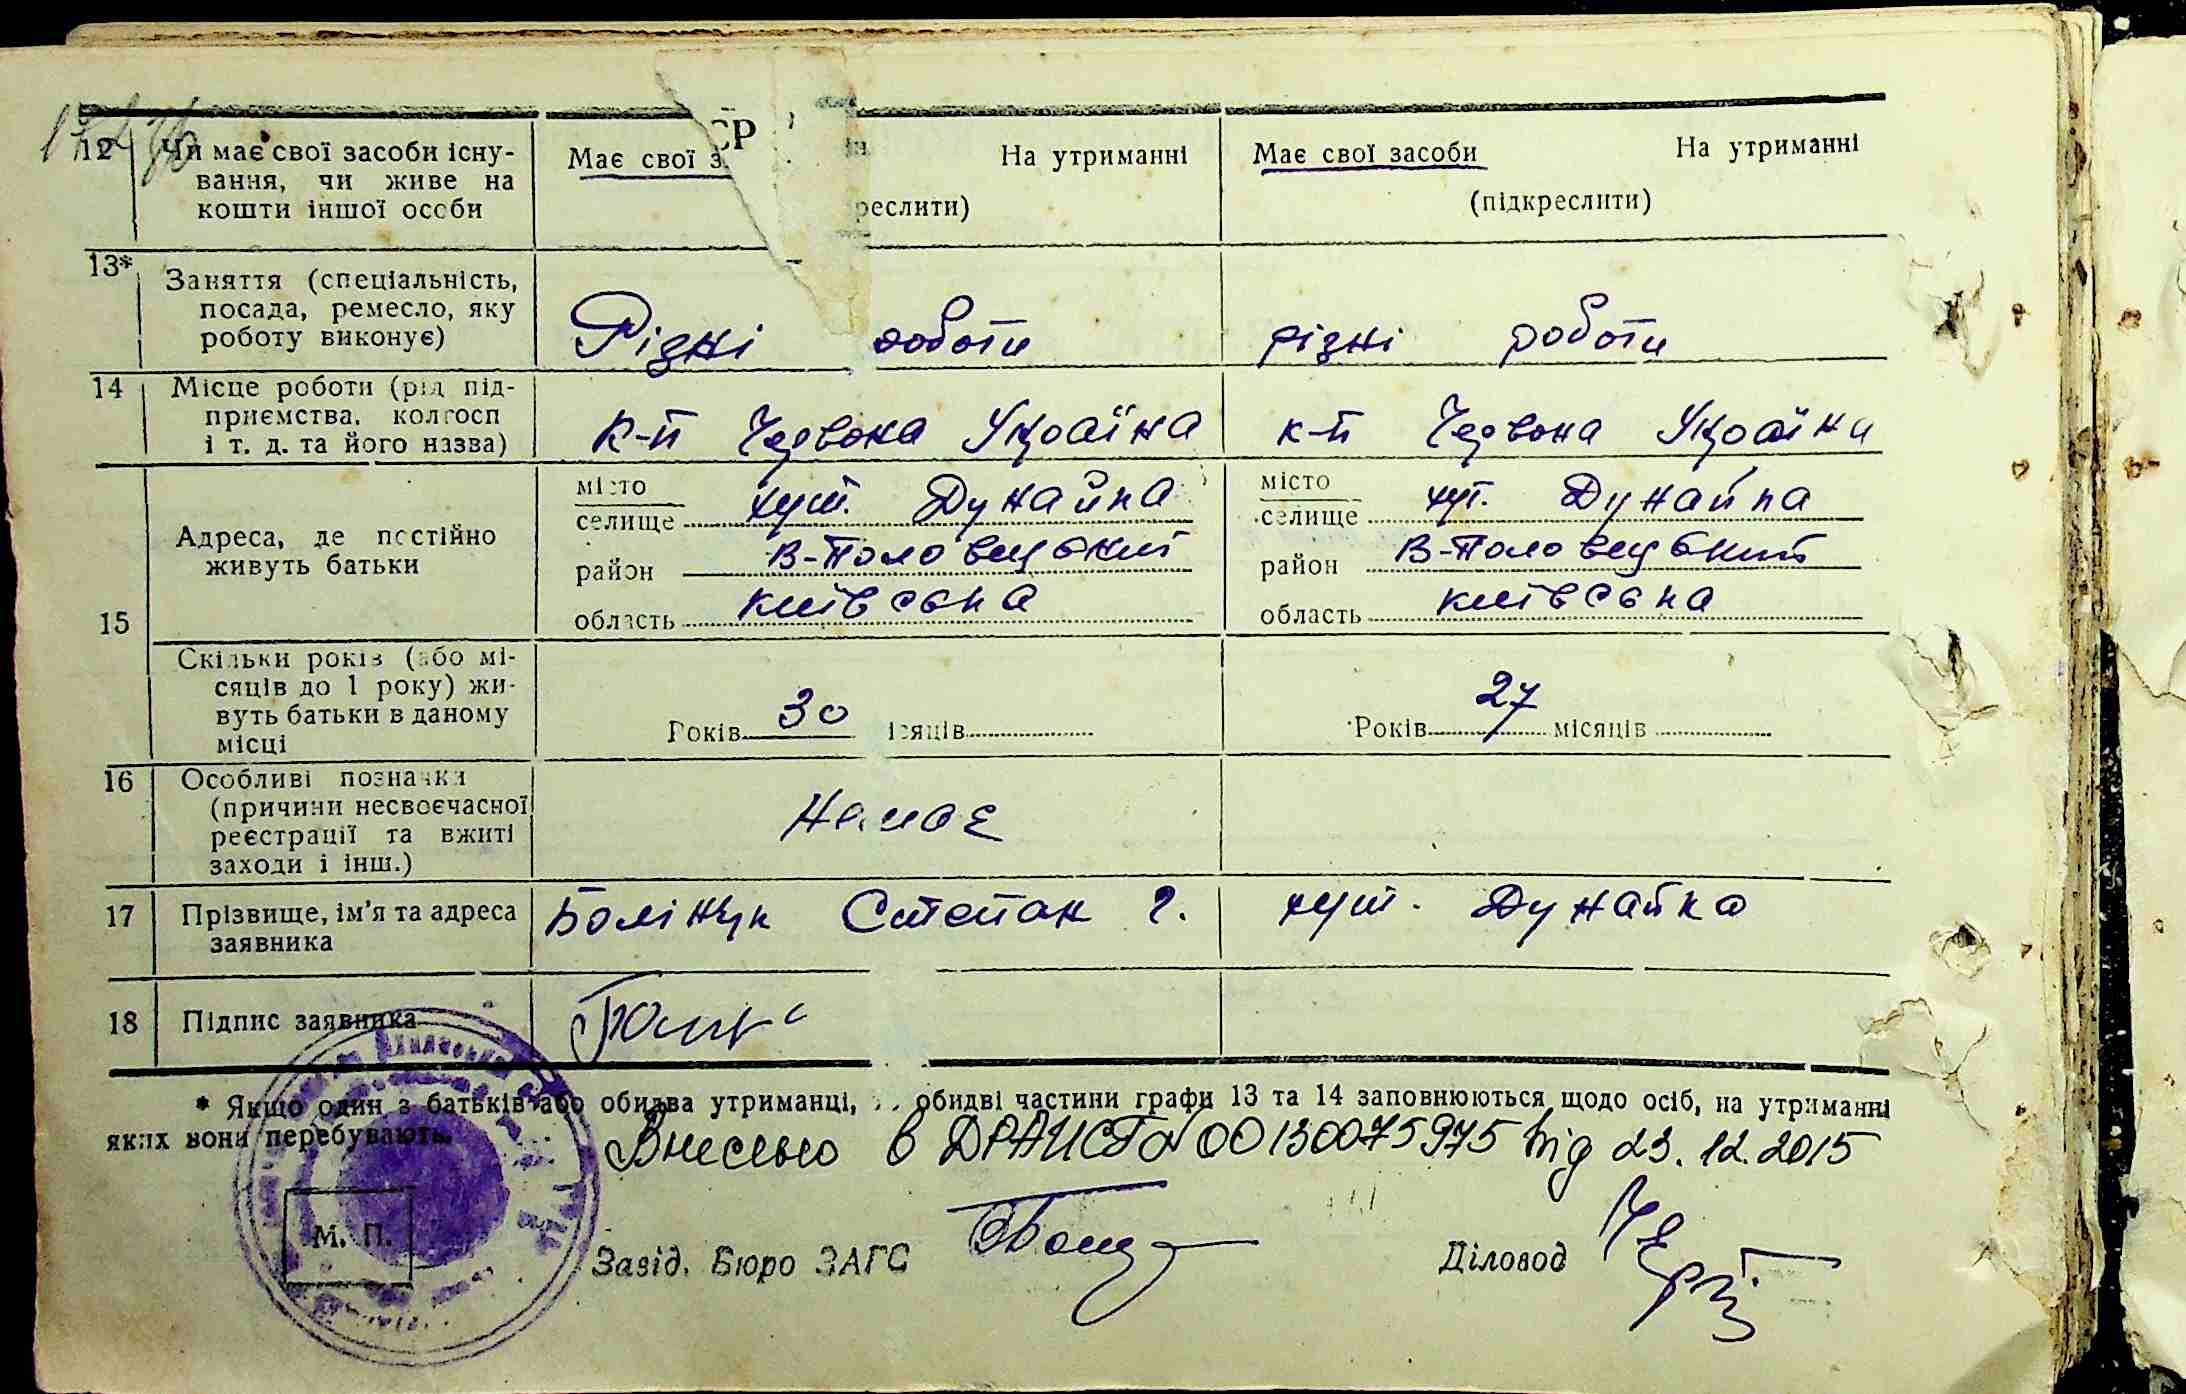 12 Чи має свої засоби існу-
вання, чи живе на
кошти іншої особи
Має свої з На утриманні
реслити)
Має свої засоби На утриманні
(підкреслити)
СР
13* Заняття (спеціальність,
посада, ремесло, яку
роботу виконує)
Різні роботи
різні роботи
14 Місце роботи (рід під-
приємства, колгосп
і т. д. та його назва)
к-п Червона Україна
к-п Червона Україна
15 Адреса, де постійно
живуть батьки
місто
селище хут. Дунайка
район В-Половецький
область київська
місто
селище хут. Дунайка
район В-Половецький
область київська
Скільки років (або мі-
сяців до 1 року) жи-
вуть батьки в даному
місці
Років 30 ісяців
Років 27 місяців
16 Особливі позначки
(причини несвоєчасної
реєстрації та вжиті
заходи і інш.)
Немає
17 Прізвище, ім'я та адреса
заявника
Полі Степан Г. хут. Дунайка
18 Підпис заявника
* Якщо один з батьків або обидва утриманці, обидві частини графи 13 та 14 заповнюються щодо осіб, на утриманні
яких вони перебувають.
Внесено в ДРАЦСГ № 00130075975 від 23.12.2015
М. П.
Завід. Бюро ЗАГС
Діловод